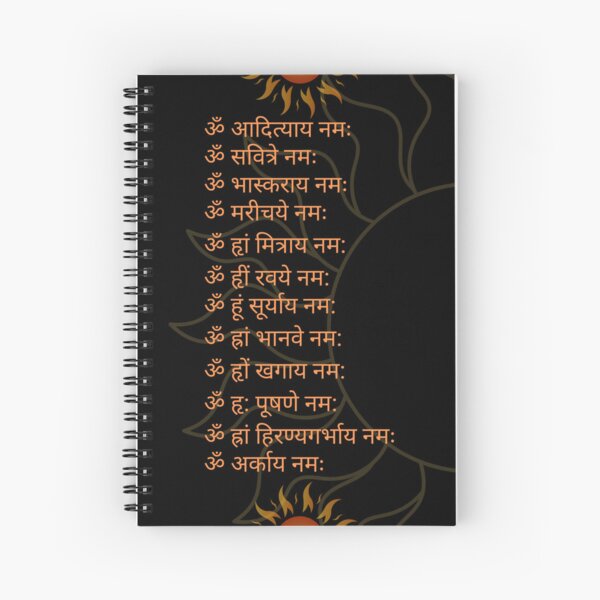 ॐ आदित्याय नमः
ॐ सवित्रे नमः
ॐ भास्कराय नमः
ॐ मरीचये नमः
ॐ हृां मित्राय नमः
ॐ हृीं रवये नमः
ॐ हूं सूर्याय नमः
ॐ ह्रां भानवे नमः
ॐ हृों खगाय नमः
ॐ हृः पूषणे नमः
ॐ ह्रां हिरण्यगर्भाय नमः
ॐ अर्काय नमः